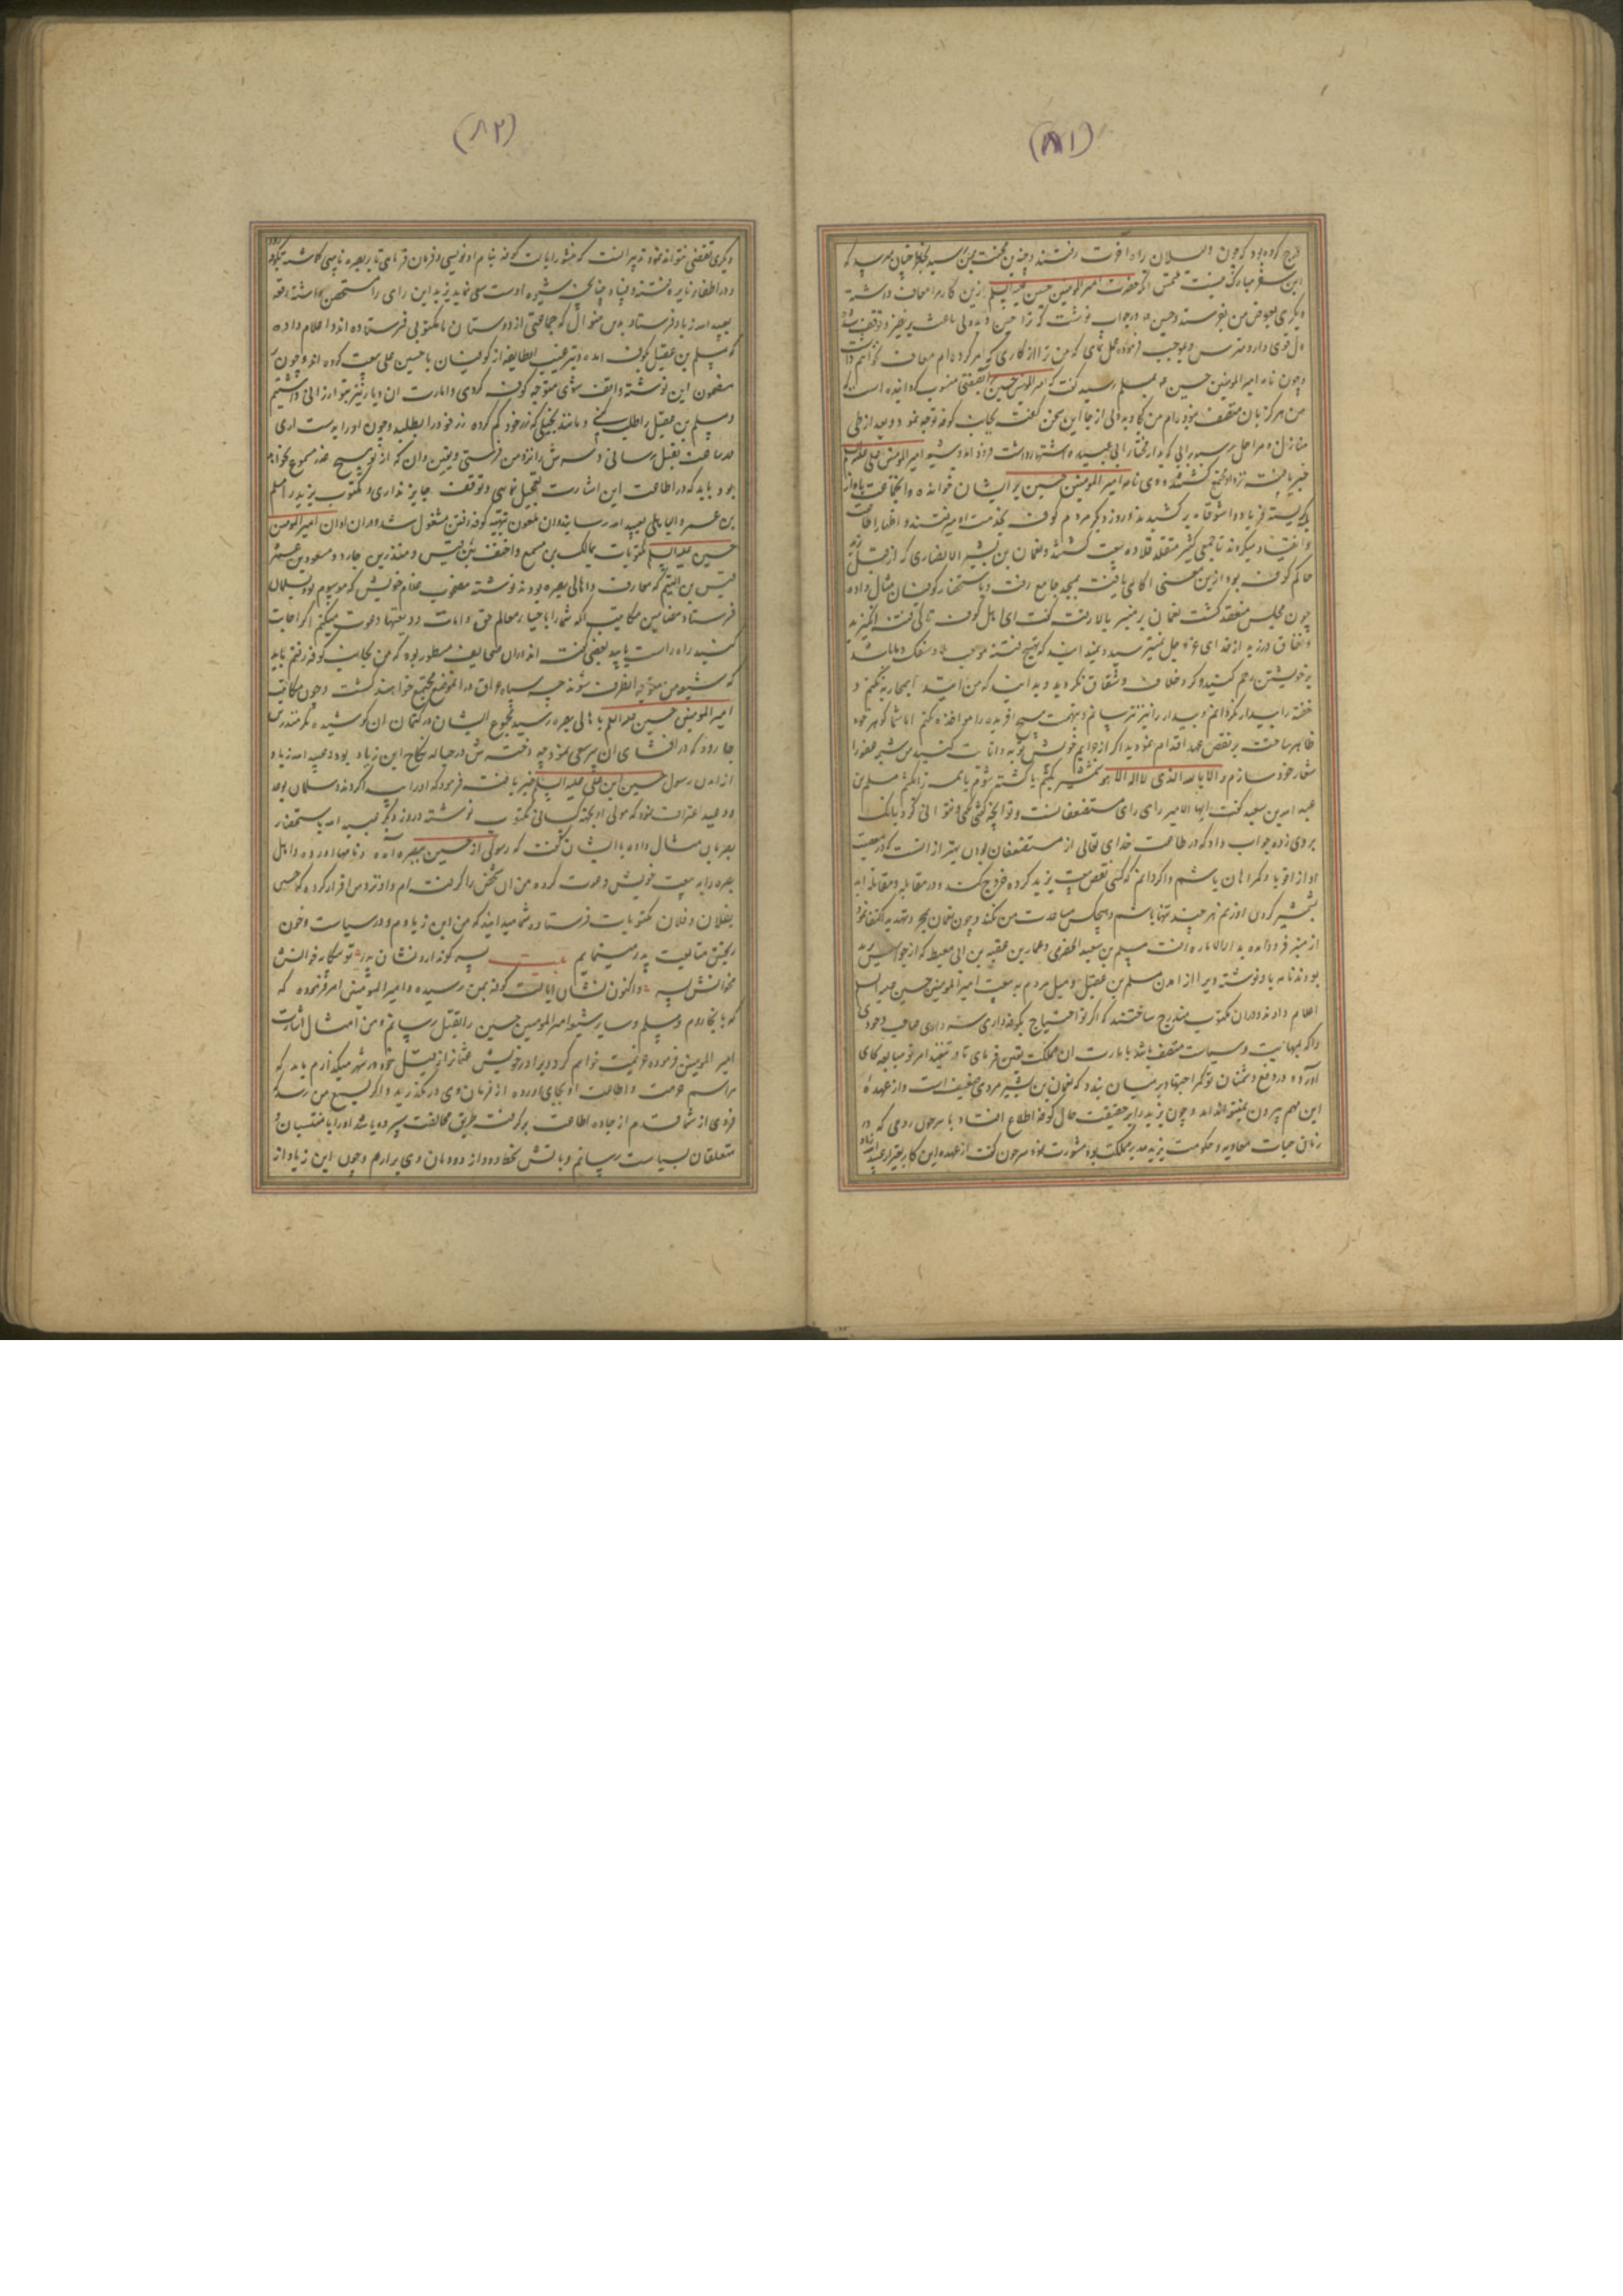 (۸۱)
خرج کرده بود که چون دلیلان راه آخرت رفتند و چندین محنت بمن رسید بخاطر چنان میرسد که
این سفر مبارک نیست ملتمس آنکه حضرت امیرالمومنین حسین علیه السلم ازین کار مرا معاف داشته
دیگری بعوض من بفرستد و حسین در جواب نوشت که ترا جبن و بددلی باعث برین
دل قوی دار و مترس و بموجب فرموده عمل نمای که من ترا از کاری که امر کرده‌ام معاف نخواهم داشت
و چون نامه امیرالمومنین حسین بمسلم رسید گفت که امیرالمومنین حسین مرا بصفتی منسوب گردانیده است که
من هرگز بان متصف نبوده‌ام من کجا و بددلی از کجا این سخن گفت بجانب کوفه توجه نمود و بعد از طی
منازل و مراحل بسرایی که بدار مختار ابی عبیده اشتهار داشت فرود آمد و شیعه امیرالمومنین علی
خبر یافته نزد او مجتمع گشتند و وی نامه امیرالمومنین حسین بر ایشان خوانده و آنجماعت
بگریسته فریاد وا شوقاه بر کشیدند و روز دیگر مردم کوفه بخدمت او میرفتند و اظهار اطاعت
و انقیاد میکردند تا جمعی کثیر متقلد قلاده بیعت گشتند و نعمان بن بشیر الانصاری که از قبل یزید
حاکم کوفه بود ازین معنی آگاهی یافت بمسجد جامع رفت و باستحضار کوفیان مثال داده
چون مجلس منعقد گشت نعمان بر منبر بالا رفت گفت ای اهل کوفه تا کی فتنه انگیزید
و نفاق ورزید از خدای عز و جل نمیترسید و نمیدانید که تهییج فتنه موجب سفک دما باشد
بر خویشتن رحم کنید و گرد خلاف و شقاق نگردید و بدانید که من ابتدا بمحاربه نکنم و
خفته را بیدار نگردانم و بیدار را نیز نترسانم و بتهمت هیچ آفریده را مواخذه نکنم اما شما گوهر خود
ظاهر ساخته بر نقض عهد اقدام نمودید اگر از جرایم خویش توبه و انابت کنید من شیوه عفو را
شعار خود سازم و الا بالله الذی لا اله الا هو شمشیر بکشم یا کشته شوم یا همه را بکشم مسلم بن
عبدالله بن سعید گفت ایها الامیر رای رای مستضعفانست و تو آنچه گفتی نمیتوانی کرد بانگ
بر وی زده جواب داد که در طاعت خدای تعالی از مستضعفان بودن بهتر از آنست که در معصیت
او از اقویا و گمراهان باشم و اگر دانم که کسی نقض بیعت یزید کرده خروج کند و در مقابله و مقاتله آید
بشمشیر کردن او زنم هر چند تنها باشم و هیچکس مساعدت من نکند و چون نعمان بجز تهدید اکتفا نمود
از منبر فرود آمده بدارالاماره رفت مسلم بن سعید الحضرمی و عمار بن عقبه بن ابی معیط که از جواسیس یزید
بودند نامه باو نوشته ویرا از آمدن مسلم بن عقیل و میل مردم به بیعت امیرالمومنین حسین علیه السلم
اعلام دادند و در آن مکتوب مندرج ساختند که اگر تو احتیاج بکوفه داری صاحب وجودی
را که بمهابت و سیاست متصف باشد بامارت آن مملکت تعیین فرمای تا در تنفیذ امر تو مبالغه بجای
آورده در دفع دشمنان تو کمر اجتهاد بر میان بندد که نعمان بن بشیر مردی ضعیف است و از عهده
این مهم بیرون نمیتواند آمد و چون یزید را بر حقیقت حال کوفه اطلاع افتاد با سرجون رومی که در
زمان حیات معاویه و حکومت یزید مدبر مملکت بود مشورت نمود سرجون گفت از عهده این کار بغیر از عبیدالله زیاد
(۸۲)
دیگری تفصی نتواند نمود تدبیر آنست که منشور ایالت کوفه بنام او نویسی و فرمان فرمایی تا بر بصره نایبی گماشته بکوفه رود
و در اطفاء نایره فتنه و فساد چنانچه شیوه اوست سعی نماید یزید این رای را مستحسن داشته رقعه
بعبیدالله زیاد فرستاد بدین منوال که جماعتی از دوستان ما مکتوبی فرستاده‌اند و اعلام داده
که مسلم بن عقیل بکوفه آمده و بترغیب او طایفه از کوفیان با حسین علی بیعت کرده‌اند و چون بر
مضمون این نوشته واقف شوی متوجه کوفه گردی و امارت آن دیار نیز بتو ارزانی داشتیم
و مسلم بن عقیل را طلب کنی و مانند بخیلی که زر خود گم کرده زر خود را بطلبد و چون او را بدست آری
در ساعت بقتل رسانی و سرش را نزد من فرستی و یقین دان که از تو هیچ عذر مسموع نخواهد
بود و باید که در اطاعت این اشارت تعجیل نمایی و توقف جایز نداری و مکتوب یزید را مسلم
بن عمرو الباهلی بعبیدالله رسانید و آن ملعون بتهیه کوفه رفتن مشغول شد و در آن اوان امیرالمومنین
حسین علیه السلم مکتوبات بمالک بن مسمع و احنف بن قیس و منذر بن جارود و مسعود بن عمرو و
قیس بن الهیثم که معارف و اهالی بصره بودند نوشته مصحوب غلام خویش که موسوم بود بسلمان
فرستاد مضامین مکاتیب آنکه شما را باحیاء معالم حق و اماتت بدعتها دعوت میکنم اگر اجابت
کنید راه راست یابید بعضی گفته‌اند در آن صحایف مسطور بود که من بجانب کوفه رفتم باید
که شیعه من متوجه آنطرف شوند چه سپاه عراق در آنموضع مجتمع خواهند گشت و چون مکاتیب
امیرالمومنین حسین علیه السلم باهالی بصره رسید مجموع ایشان در کتمان آن کوشیده مگر منذر بن
جارود که در افشای آن سر سعی نمود چه دخترش در حباله نکاح ابن زیاد بود و عبیدالله زیاد
از آمدن رسول حسین ابن علی علیه السلم خبر یافت فرمود که او را پیدا کردند و سلمان بعد
وعید اعتراف نمود که مولی او بچه کسانی مکتوب نوشته و روز دیگر عبیدالله باستحضار
بصریان مثال داده با ایشان گفت که رسولی از حسین ببصره آمده و نامها آورده و اهل
بصره را به بیعت خویش دعوت کرده من آن شخص را گرفته‌ام و او نزد من اقرار کرده که حسین
بفلان و فلان مکتوبات فرستاده شما میدانید که من ابن زیادم و در سیاست و خون
ریختن متابعت پدر مینمایم بیت پسر کو ندارد نشان پدر تو بیگانه خوانش
مخوانش پسر و اکنون نشان ایالت کوفه بمن رسیده و امیرالمومنین امر فرموده که
که بآنجا روم و مسلم و سایر شیعه امیرالمومنین حسین را بقتل رسانم و من امتثال اشارت
امیرالمومنین فرموده عزیمت خواهم کرد و برادر خویش عثمان را از قبل خود در شهر میگذارم باید که
مراسم حرمت و اطاعت او بجای آورده از فرمان وی در نگذرید و اگر بسمع من رسد که
فردی از شما قدم از جاده اطاعت بر گرفته طریق مخالفت سپرده باشد او را با منتسبان و
متعلقان بسیاست رسانم و باتش سخط دود از دودمان وی برآرم و چون ابن زیاد از